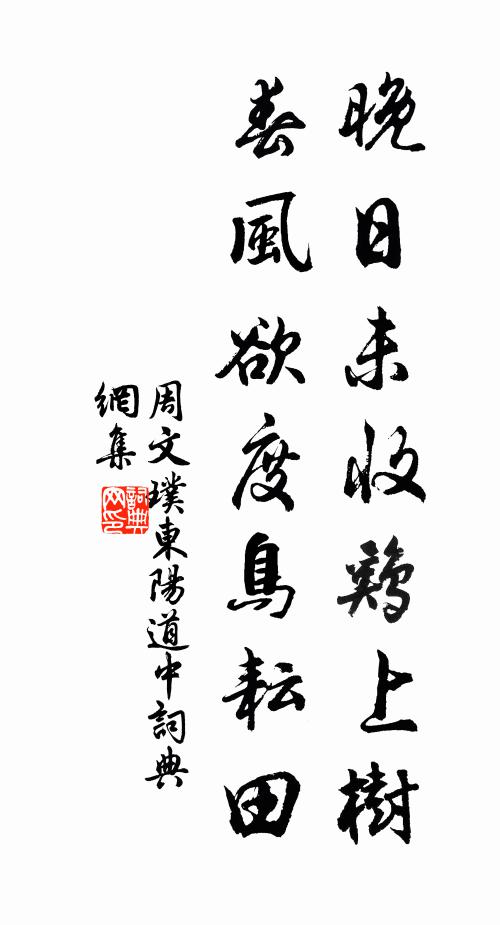 晚日未收鷄上樹
春風欲度鳥耘田
周文璞東陽道中詞典
網集
詞典
网印